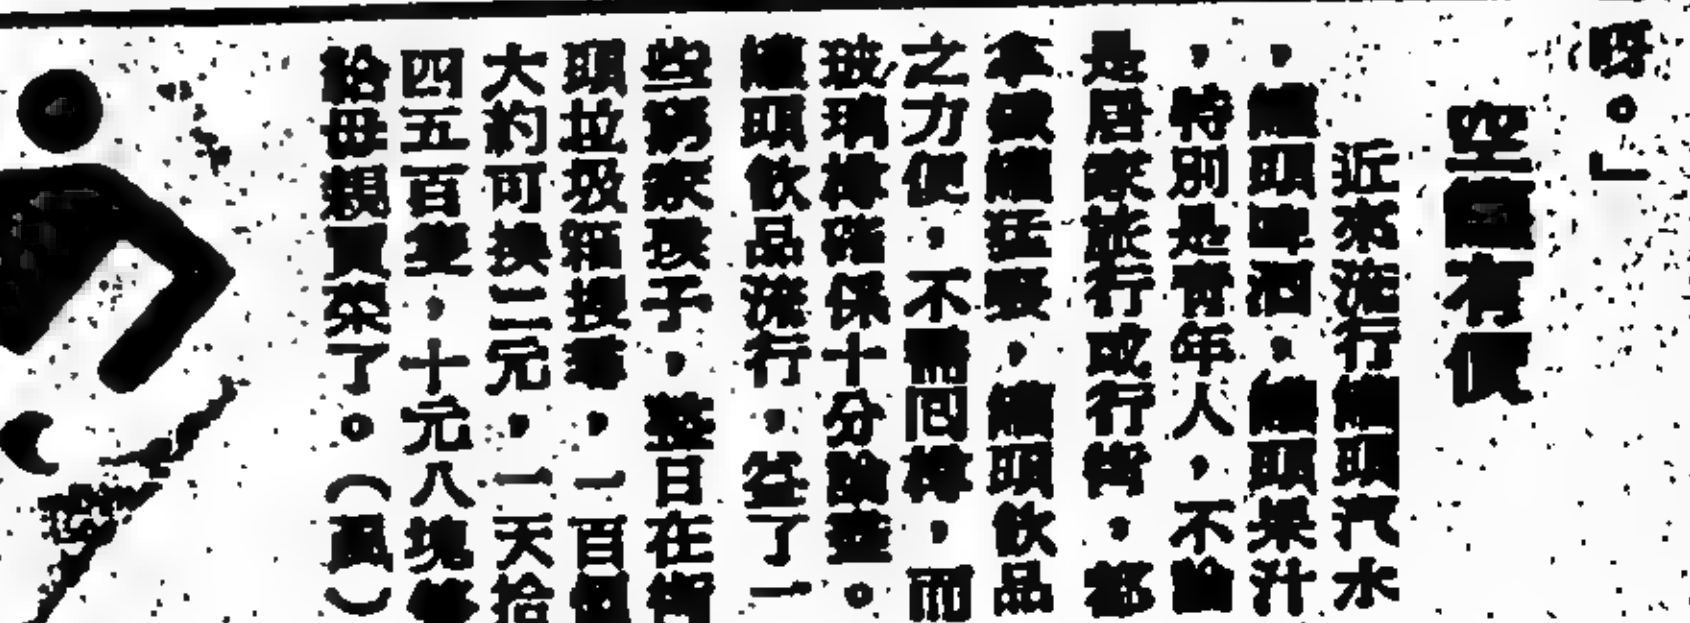 呀。」
空罐有價
近來流行罐頭汽水
，罐頭啤酒，罐頭果汁
，特別是青年人，不論
是居家旅行或行街，都
拿罐猛，罐頭飲品
之力便，不需回樽，而
玻璃樽確係十分論盡。
罐頭飲品流行，益了一
些窮家孩子，整日在街
頭垃圾箱搜尋，一百個
大約可換二元，一天拾
四五百隻，十元八塊夠
給母親買菜了。（風）